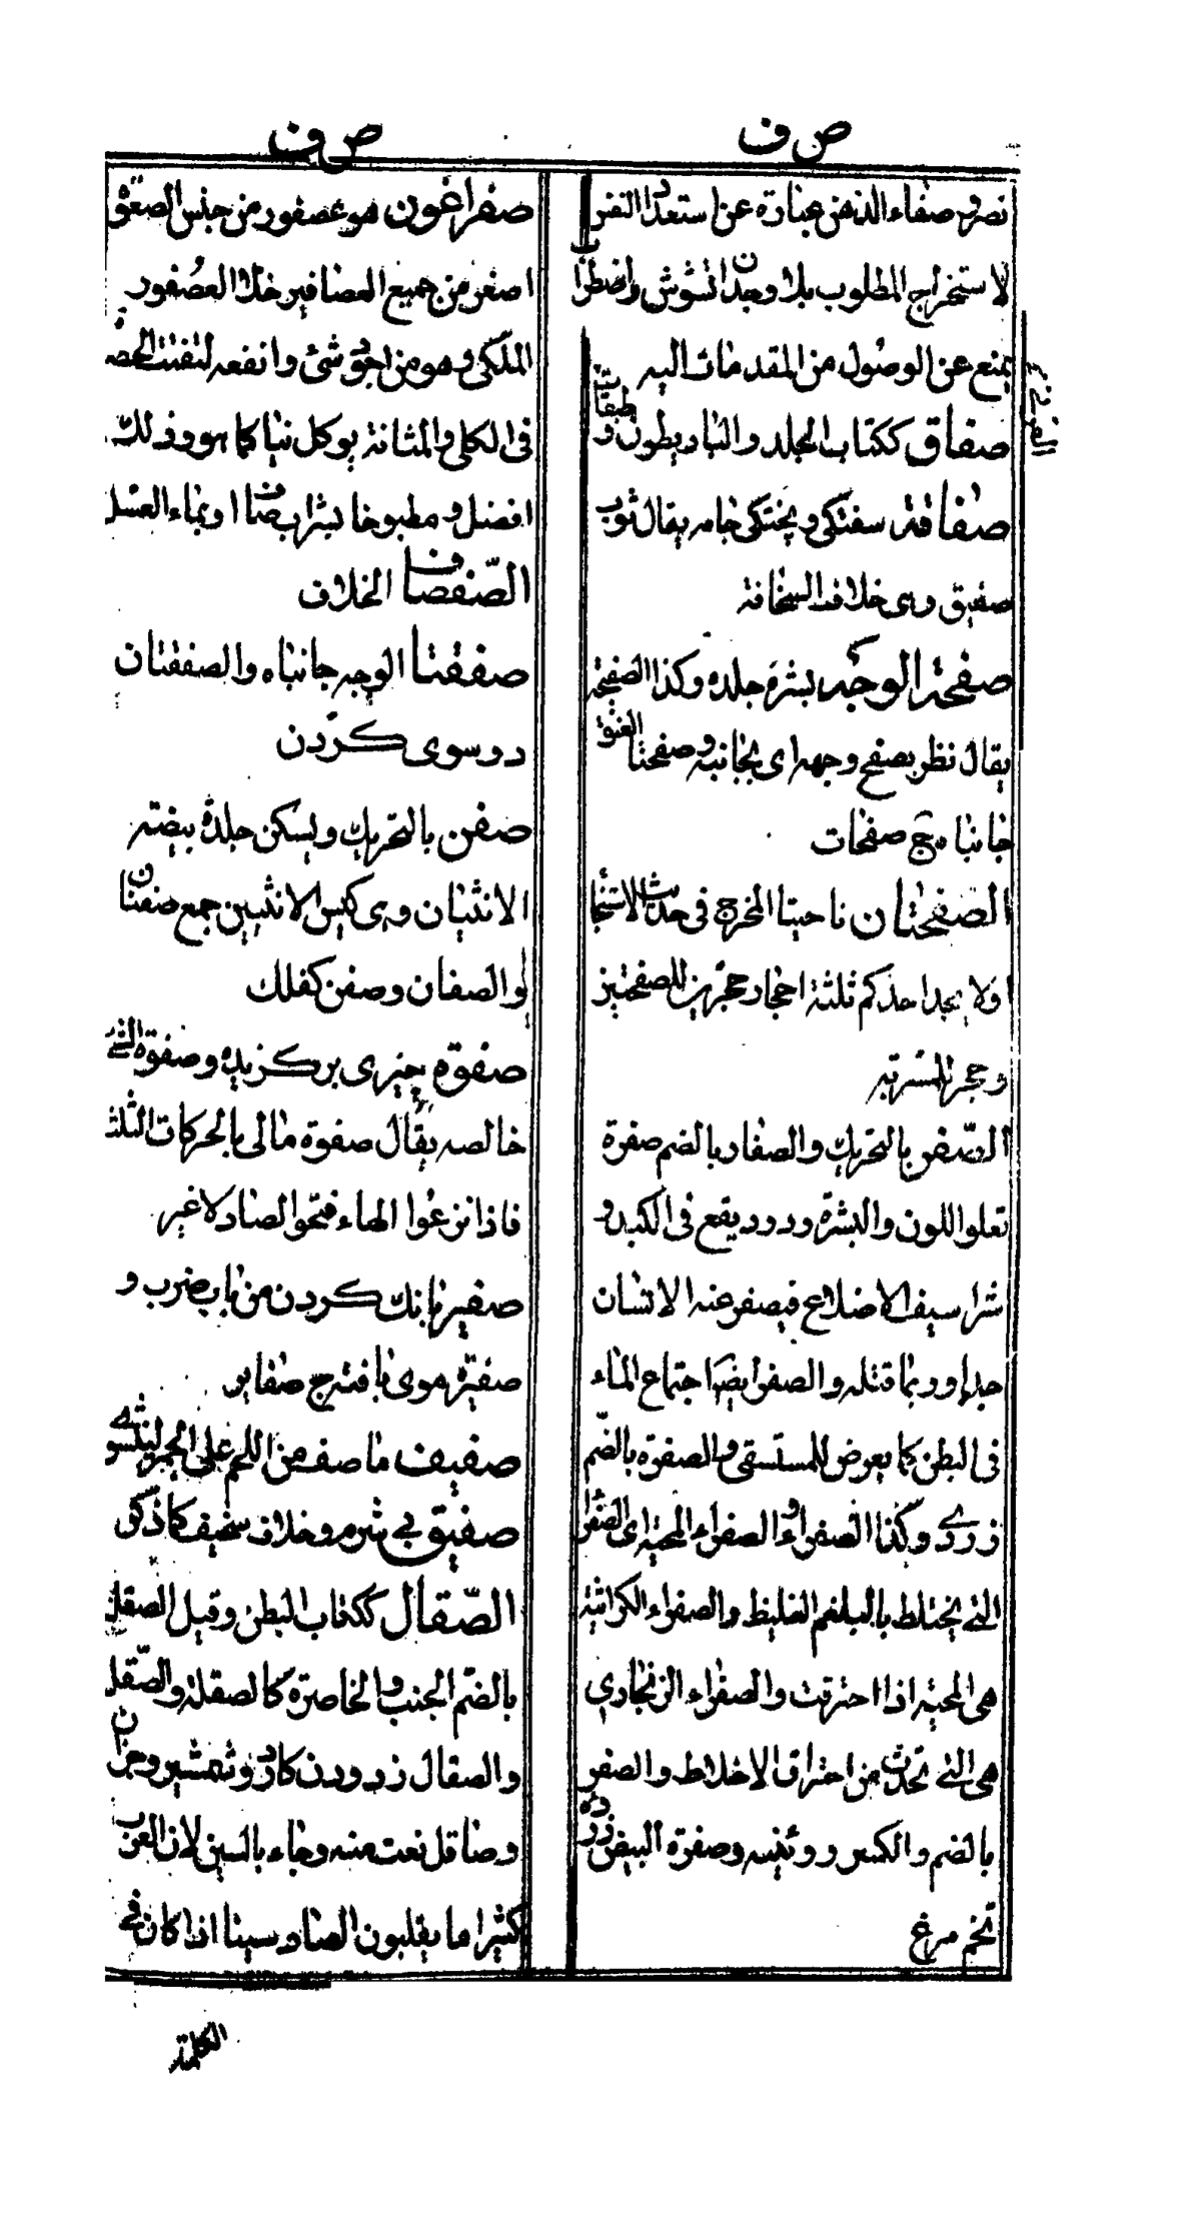 ص ف
نصر و صفاء الذهن عبارة عن استعداد النفس
لاستخراج المطلوب بلا وجدان تشوش واضطراب
يمنع عن الوصول من المقدمات اليه
صفاق ككتاب الجلد والباد يطون و طبقات
صفاقة سفتكى و پختكى جامه يقال ثوب
صفيق وهى خلاف السخافة
صفحة الوجه بشرة جلده وكذا الصفيحة
يقال نظر بصفح وجهه اى بجانبه وصفحتا العنق
جانباه ج صفحات
الصفحتان ناحيتا المخرج فى حديث الاستنجا
اولا يجد احدكم ثلثة احجار حجرين للصفحتين
وحجر للمسربة
الصّفر بالتحريك والصفار بالضم صفرة
تعلو اللون والبشرة ودود يقع فى الكبد و
شراسيف الاضلاع فيصفر عنه الانسان
جدا وربما قتله والصفر ايضا اجتماع الماء
فى البطن كما يعرض للمستسقى والصفرة بالضّم
زردى وكذا الصفراء والصفراء المحية اى الصفرا
التى يختلط بالبلغم الغليظ والصفراء الكراثية
هى المحية اذا احترقت والصفراء الزنجارى
هى التى تحدث من احتراق الاخلاط والصفر
بالضم والكسر روئينه وصفرة البيض زرده
تخم مرغ
ص ف
صفراغون هو عصفور من جنس الصعو
اصغر من جميع العصافير خلا العصفور
الملكى وهو من اجود شئ وانفعه لتفتت الحصا
فى الكلى والمثانة يوكل نيا كما هو وذلك
افضل و مطبوخا بشراب صاف او بماء العسل
الصّفصاف الخلاف
صفقتا الوجه جانباه والصفقتان
دو سوى كردن
صفن بالتحريك ويسكن جلدة بيضته
الانثيان وهى كيس الانثيين جمع صفنان
والصفان وصفن كفلك
صفوة چيزى بر كزيده وصفوة الشئ
خالصه يقال صفوة مالى بالحركات الثلث
فاذا نزعوا الهاء فتحوا الصاد لا غير
صفير بانك كردن من باب ضرب و
صفيرة موى بافته ج صفاير
صفيف ما صف من اللحم على الجمر لينشوى
صفيق بى شرم وخلاف سخيف كما ذكر
الصّقال ككتاب البطن وقيل الصقل
بالضّم الجنب والخاصرة كالصقلة والصّقل
والصقال زدودن كارد و شمشير وجز ان
وصاقل نعت منه وجاء بالسين لان العرب
كثيرا ما يقلبون الصاد سينا اذا كان فى
الكلمة